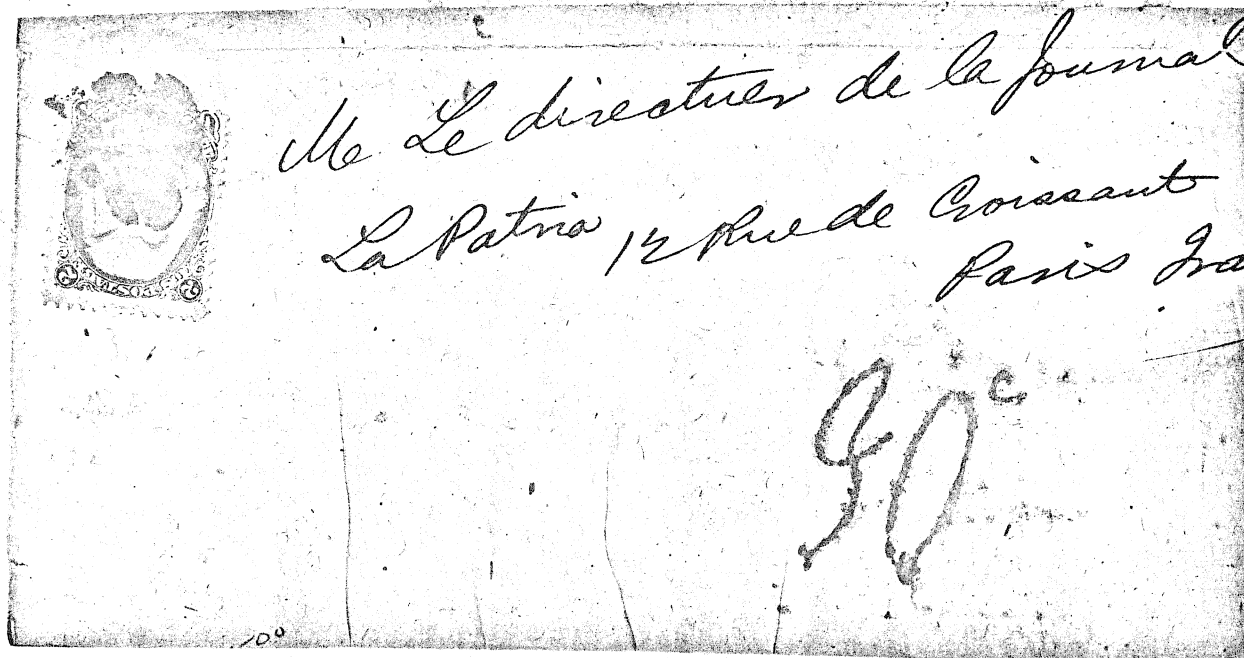 Me Le directuer de la Journal
La Patria 12 Rue de Croissant
Paris
90 c